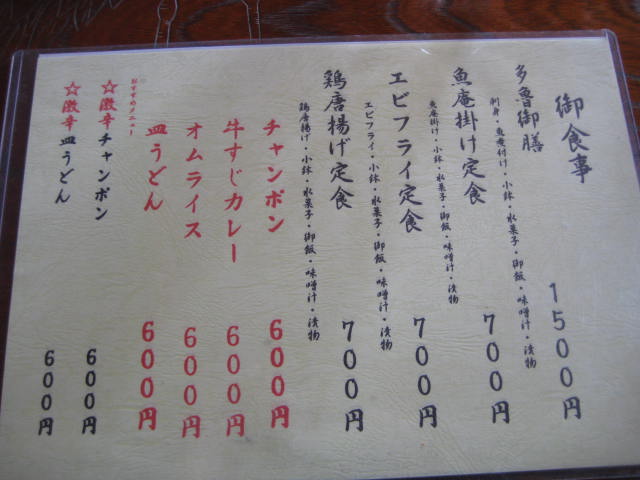 御食事
多魯御膳 1500円
刺身・魚庵付け・小鉢・水菓子・御飯・味噌汁・漬物
魚庵掛け定食 700円
魚庵掛け・小鉢・水菓子・御飯・味噌汁・漬物
エビフライ定食 700円
エビフライ・小鉢・水菓子・御飯・味噌汁・漬物
鶏唐揚げ定食 700円
鶏唐揚げ・小鉢・水菓子・御飯・味噌汁・漬物
チャンポン 600円
牛すじカレー 600円
オムライス 600円
皿うどん 600円
おすすめメニュー
☆激辛チャンポン 600円
☆激辛皿うどん 600円